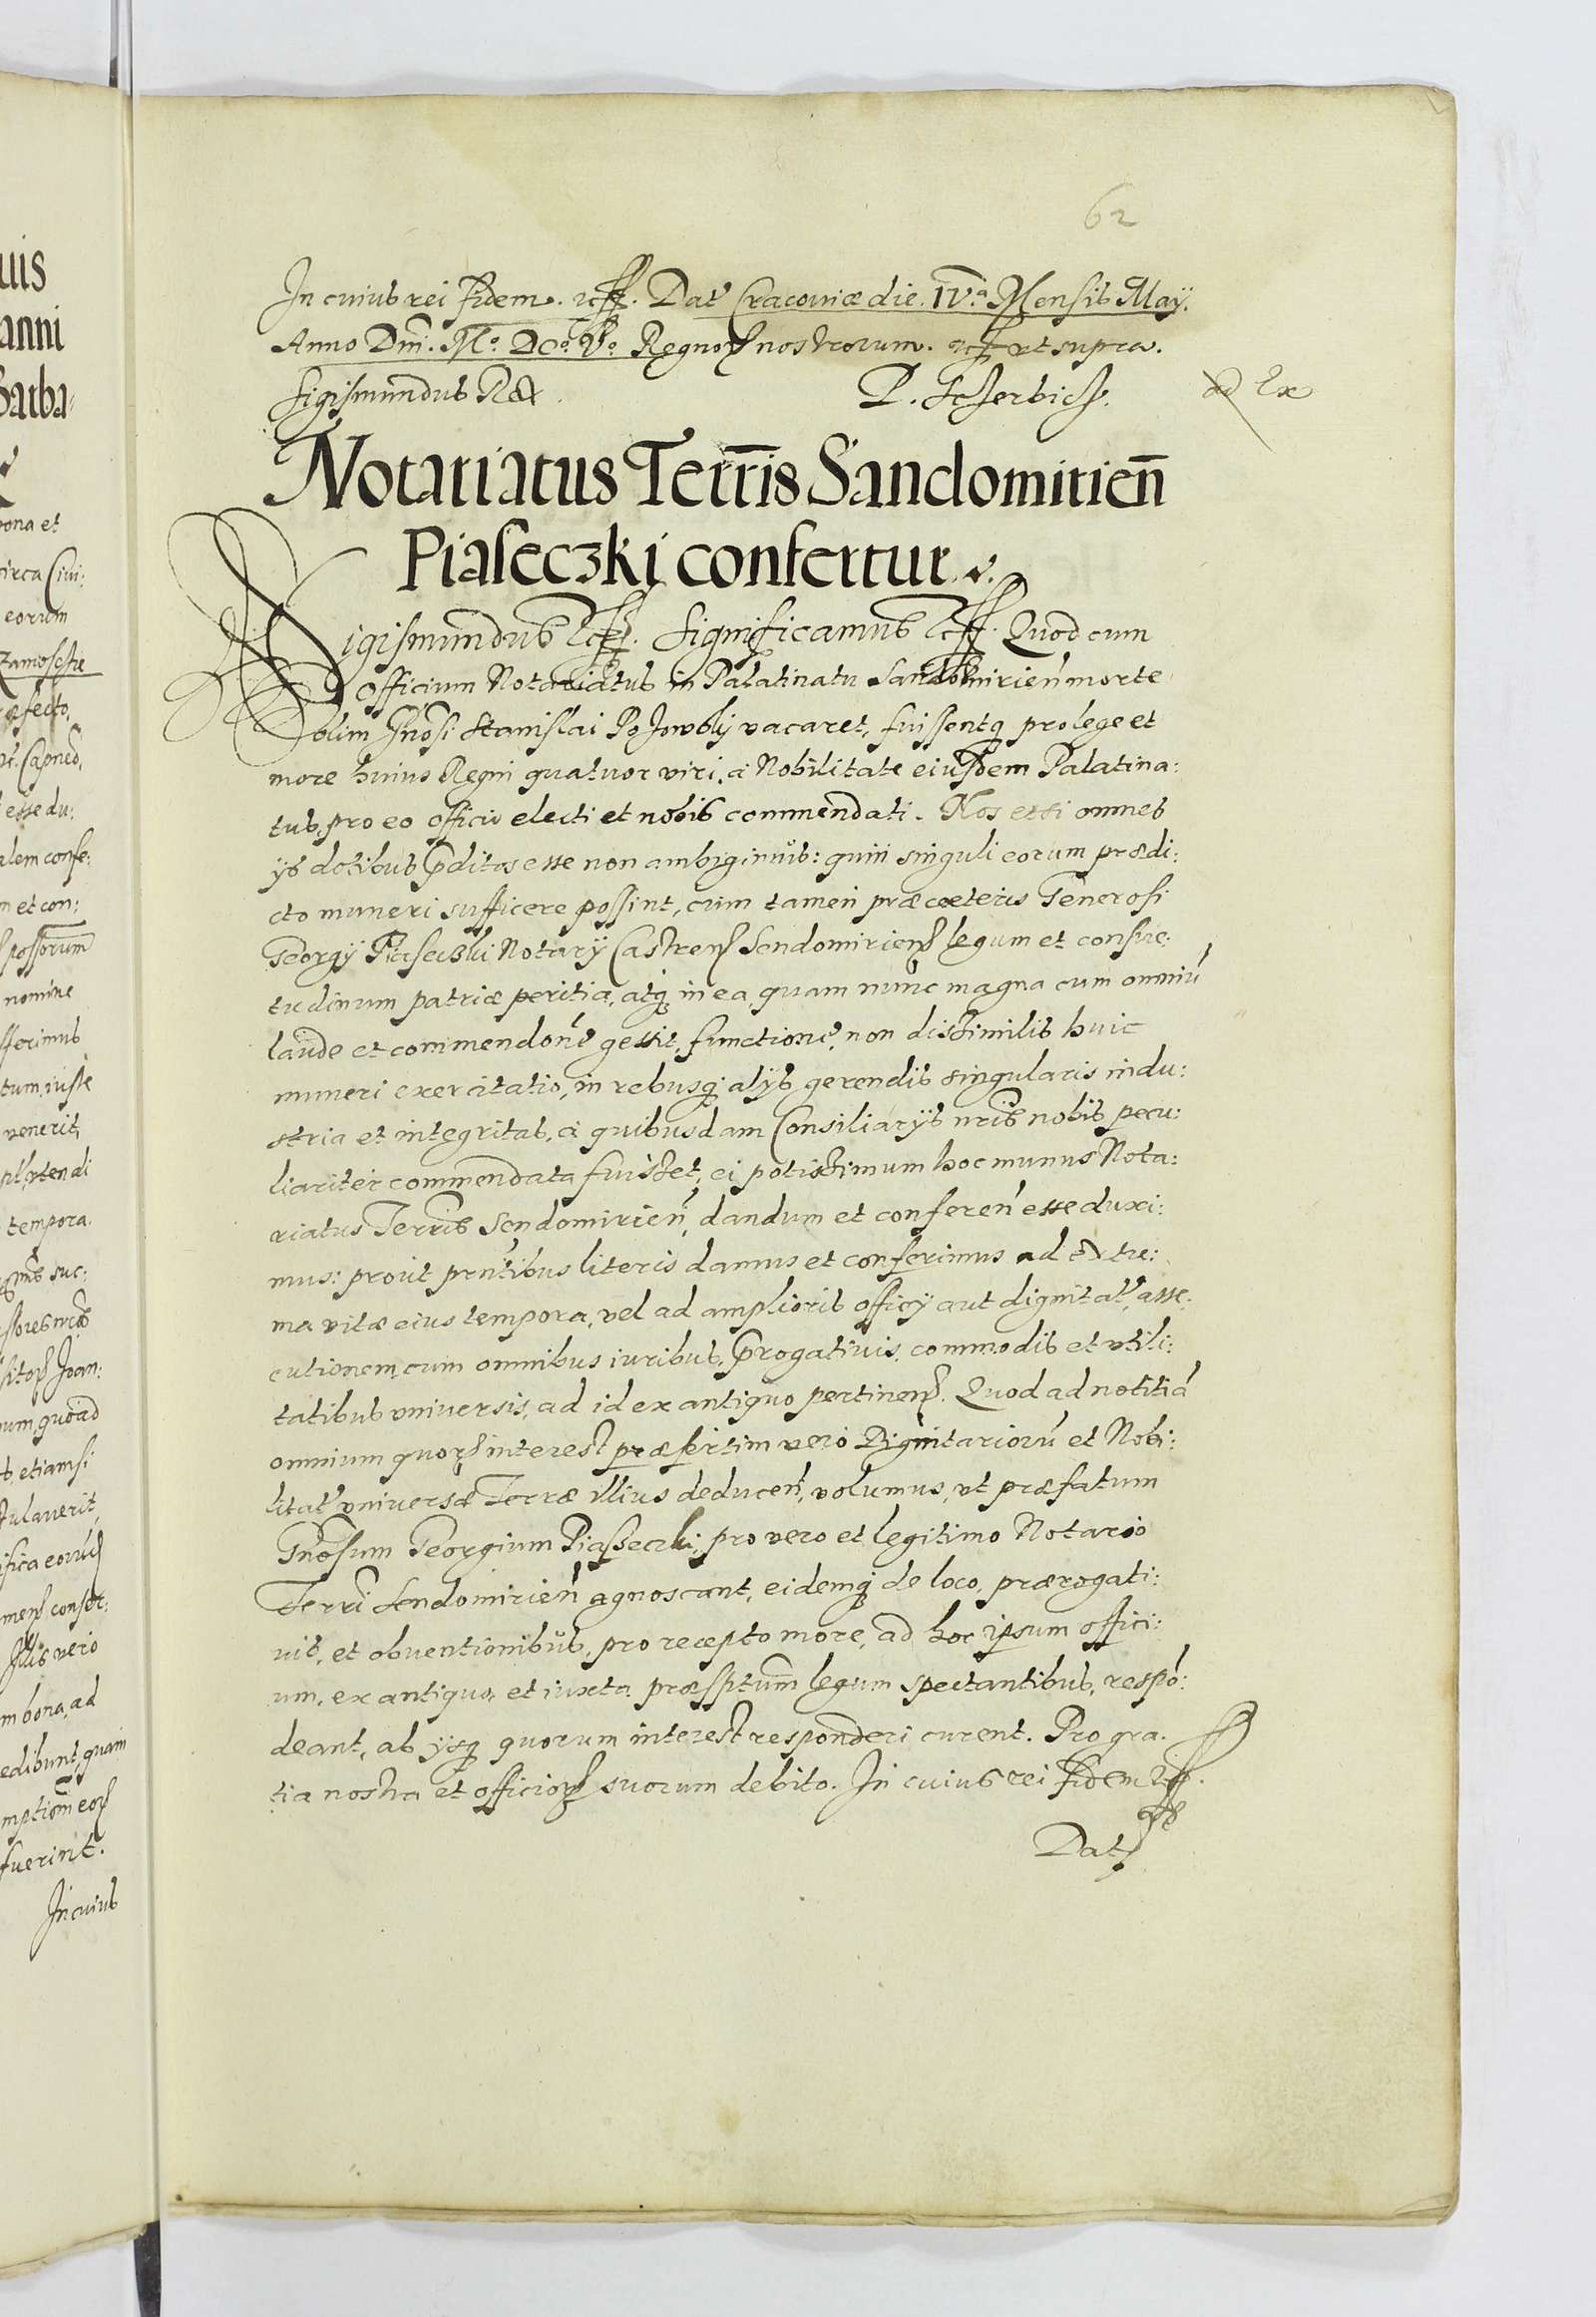 62
In cuius rei fidem. etc. Dat Cracoviæ die. IV.ª Mensis Maÿ.
Anno Dni. Mº. DCº. Vº. Regnoꝝ nostrorum. etc. ut supra.
Sigismundus Rex.
P. Scherbich.
ad Ex
Notariatus Terris Sandomirien
Piaseczkj confertur.
Sigismundus etc. Significamus etc. Quod cum
Officium Notariatus in Palatinatu Sandomirien morte
olim Gnosi Stanislai vacaret, fuissentq prolege et
more huius Regni quatuor viri, à Nobilitate eiusdem Palatina:
tus, pro eo officio electi et nobis commendati. Nos etsi omnes
ÿs dotibus pditos esse non ambigimus: quin singuli eorum prædi:
cto muneri sufficere possint, cum tamen præ cæteris Generosi
Georgÿ Piaseczki Notarÿ Castren Sendomirien legum et consue:
tudinum patriæ peritia, atq in ea, quam nunc magna cum omniu
laude et commendone gessit, functione, non dissimilis huic
muneri exercitatio, in rebusq alÿs gerendis singularis indu:
stria et integritas, à quibusdam Consiliarÿs nris nobis pecu:
liariter commendata fuisset, ei potissimum hoc munus Nota:
riatus Terris Sendomirien, dandum et conferen esse duxi:
mus: prout prntibus literis damus et conferimus ad extre:
ma vitæ eius tempora, vel ad amplioris officÿ aut dignitat asse:
cutionem, cum omnibus iuribus, progativis, commodis et vtili:
tatibus vniversis, ad id ex antiquo pertinen. Quod ad notitia
omnium quoꝝ interest præsertim vero Dignitarioru et Nobi:
litat vniversæ Terræ illius deducen, volumus, vt præfatum
Gnosum Georgium Piasseczki, pro vero et legitimo Notario
Terri Sendomirien agnoscant, eidemq de loco, prærogati:
vis, et obventionibus, pro recepto more, ad hoc ipsum offici:
um, ex antiquo, et iuxta præscptum legum spectantibus, respo:
deant, ab ÿsq quorum interest responderi curent. Pro gra.
tia nostra et officioꝝ suorum debito. In cuius rei fidem etc.
Dat